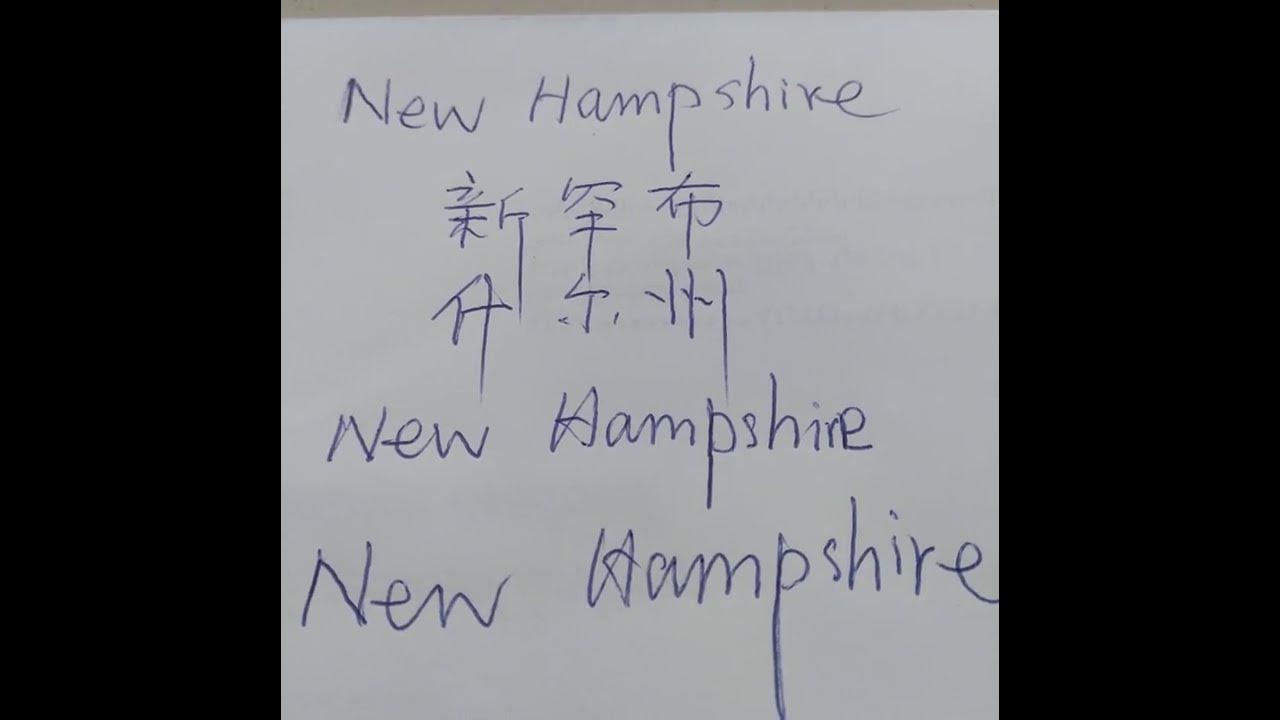 New Hampshire
新罕布
什尔州
New Hampshire
New Hampshire